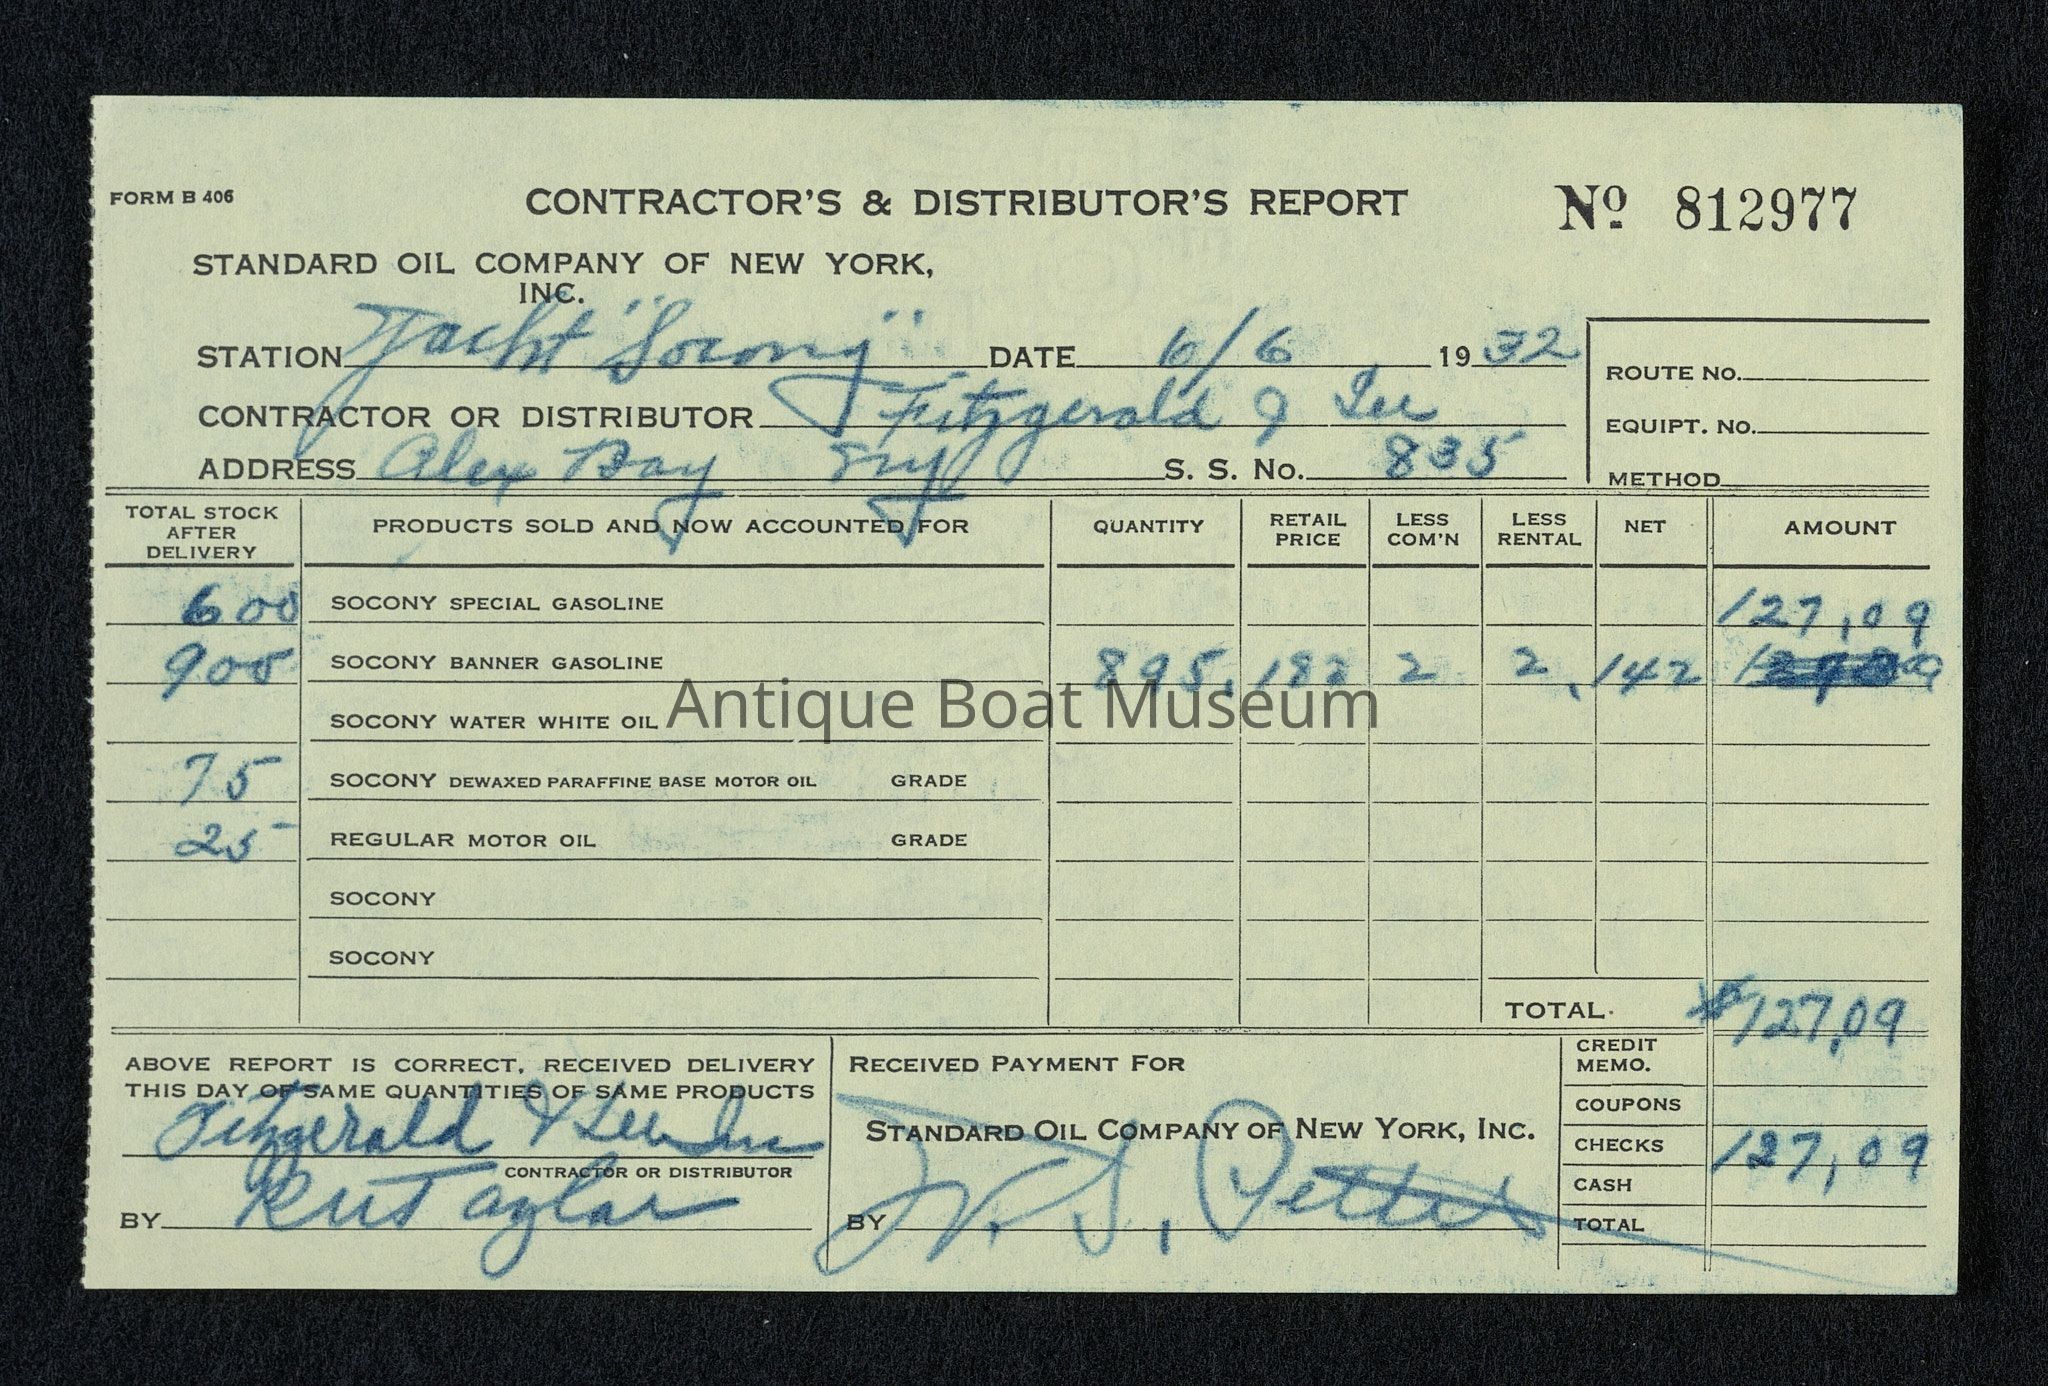 FORM B 406
CONTRACTOR'S & DISTRIBUTOR'S REPORT
Nº 812977
STANDARD OIL COMPANY OF NEW YORK,
INC.
STATION Yacht "Socony" DATE 6/6 1932
ROUTE NO.
CONTRACTOR OR DISTRIBUTOR Fitzgerald & Lee
EQUIPT. NO.
ADDRESS Alex Bay NY S. S. No. 835
METHOD
TOTAL STOCK AFTER DELIVERY PRODUCTS SOLD AND NOW ACCOUNTED FOR QUANTITY RETAIL PRICE LESS COM'N LESS RENTAL NET AMOUNT
600 SOCONY SPECIAL GASOLINE 127.09
900 SOCONY BANNER GASOLINE 895 .182 2 2 .142
SOCONY WATER WHITE OIL
Antique Boat Museum
75 SOCONY DEWAXED PARAFFINE BASE MOTOR OIL GRADE
25 REGULAR MOTOR OIL GRADE
SOCONY
SOCONY
TOTAL $127.09
ABOVE REPORT IS CORRECT, RECEIVED DELIVERY
THIS DAY OF SAME QUANTITIES OF SAME PRODUCTS
Fitzgerald & Lee Inc
CONTRACTOR OR DISTRIBUTOR
BY Taylor
RECEIVED PAYMENT FOR
STANDARD OIL COMPANY OF NEW YORK, INC.
BY
CREDIT MEMO.
COUPONS
CHECKS 127.09
CASH
TOTAL